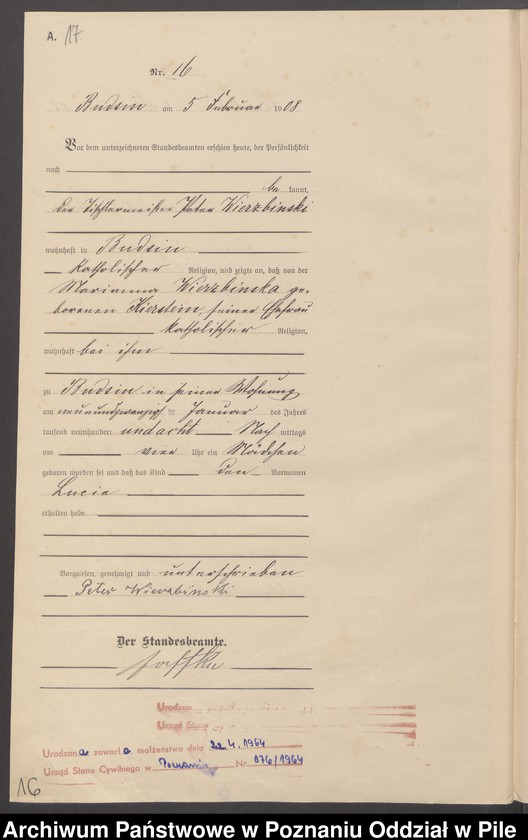 A. 17
Nr. 16
Budsin am 5 Februar 1908
Vor dem unterzeichneten Standesbeamten erschien heute, der Persönlichkeit
nach
be kannt,
der Tischlermeister Peter Wierzbinski
wohnhaft in Budsin
katholischer Religion, und zeigte an, daß von der
Marianna Wierzbinska ge-
borenen Kierstein, seiner Ehefrau
katholischer Religion,
wohnhaft bei ihm
zu Budsin in seiner Wohnung
am neunundzwanzigsten Januar des Jahres
tausend neunhundert und acht Nach mittags
um vier Uhr ein Mädchen
geboren worden sei und daß das Kind den Vornamen
Lucia
erhalten habe.
Vorgelesen, genehmigt und unterschrieben
Peter Wierzbinski
Der Standesbeamte.
Urodzon
Urząd
Urodzona zawarła małżeństwo dnia 22.4.1964
Urząd Stanu Cywilnego w Poznaniu Nr 176/1964
16
Archiwum Państwowe w Poznaniu Oddział w Pile